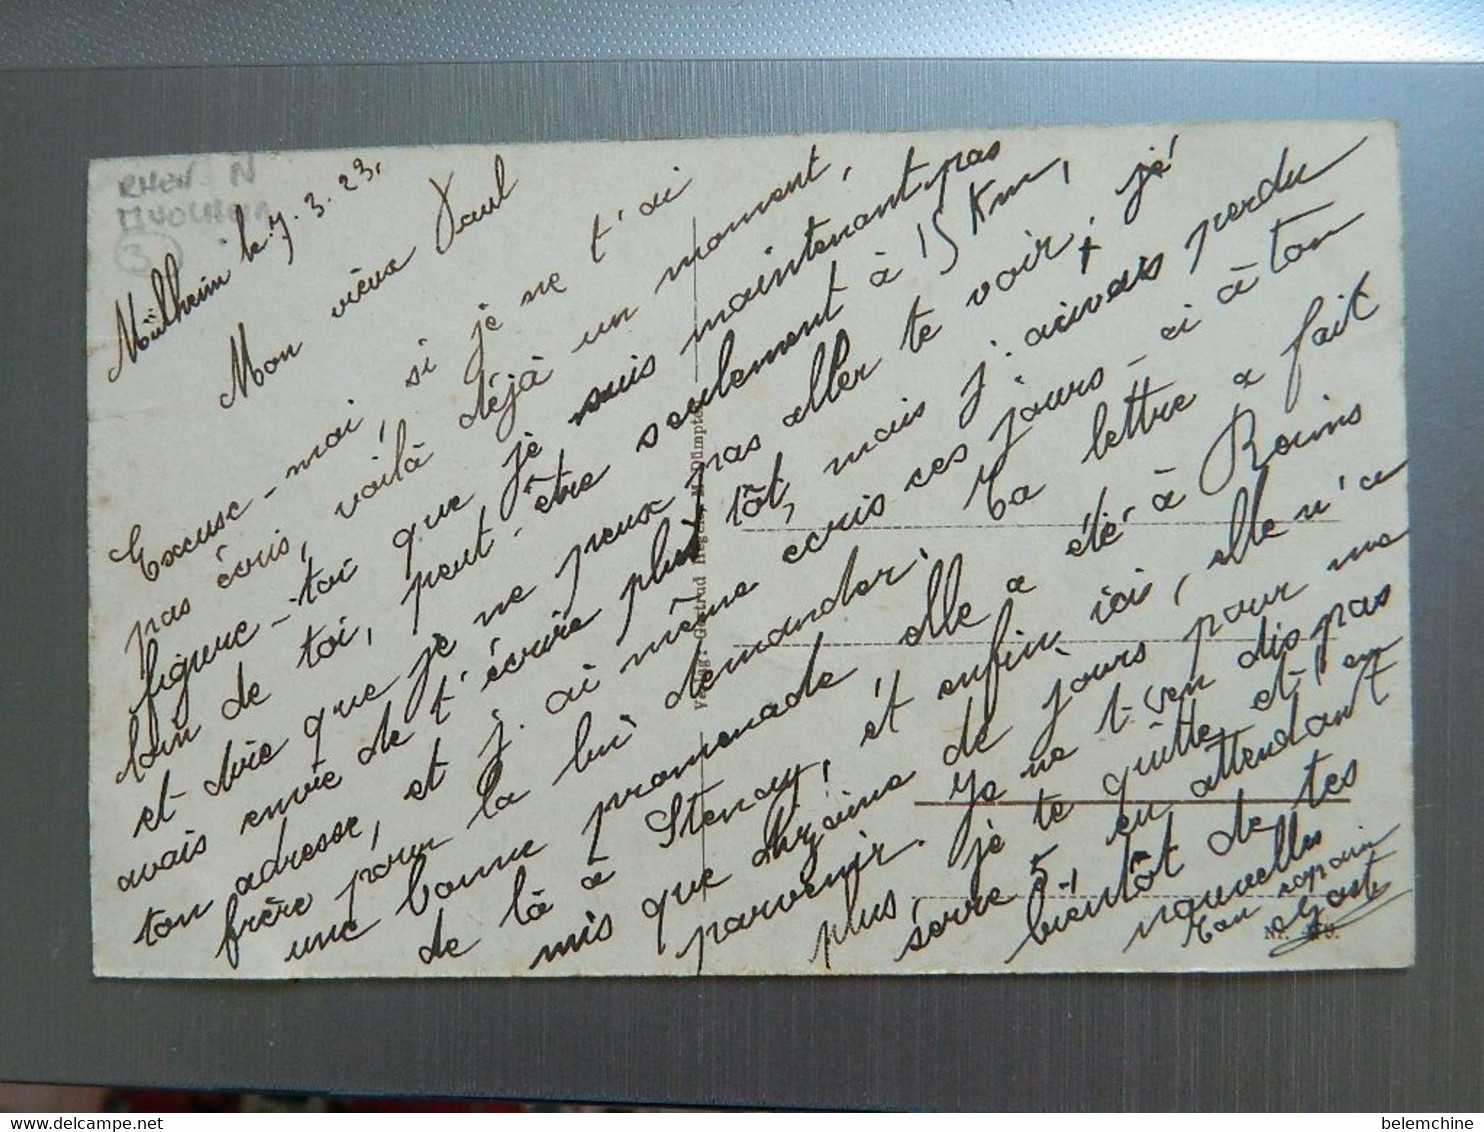 Mülheim le 7.3.23.
Mon vieux Paul
Excuse-moi, si je ne t'ai
pas écris, voilà déjà un moment,
figure-toi que je suis maintenant pas
loin de toi, peut-être seulement à 15 Km,
et dire que je ne peux pas aller te voir; j'
avais envie de t'écrire plus tôt, mais j'avais perdu
ton adresse, et j'ai même écris ces jours-ci à ton
frère pour la lui demander. Ta lettre a fait
une bonne promenade, elle a été à Reims
de là à Stenay, et enfin ici, elle n'a
mis que quinze de jours pour me
parvenir. Je ne t'en dis pas
plus, je te quitte et t'en
serre 5, en attendant
bientôt de tes
nouvelles
Ton copain
RHEIN N
MUOLHEIM
3
Verl. Gertrud
belemchine